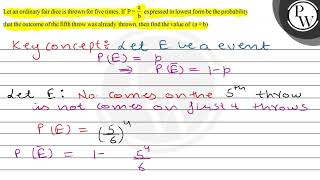 Let an ordinary fair dice is thrown for five times. If P = a/b expressed in lowest form be the probability
that the outcome of the fifth throw was already thrown, then find the value of (a + b)
PW
Key concept:- Let E be a event
P(E) = p
⇒ P(Ē) = 1-p
Let E : No comes on the 5th throw
is not comes on first 4 throws
P(E) = (5/6)^4
P(Ē) = 1- 5^4/6